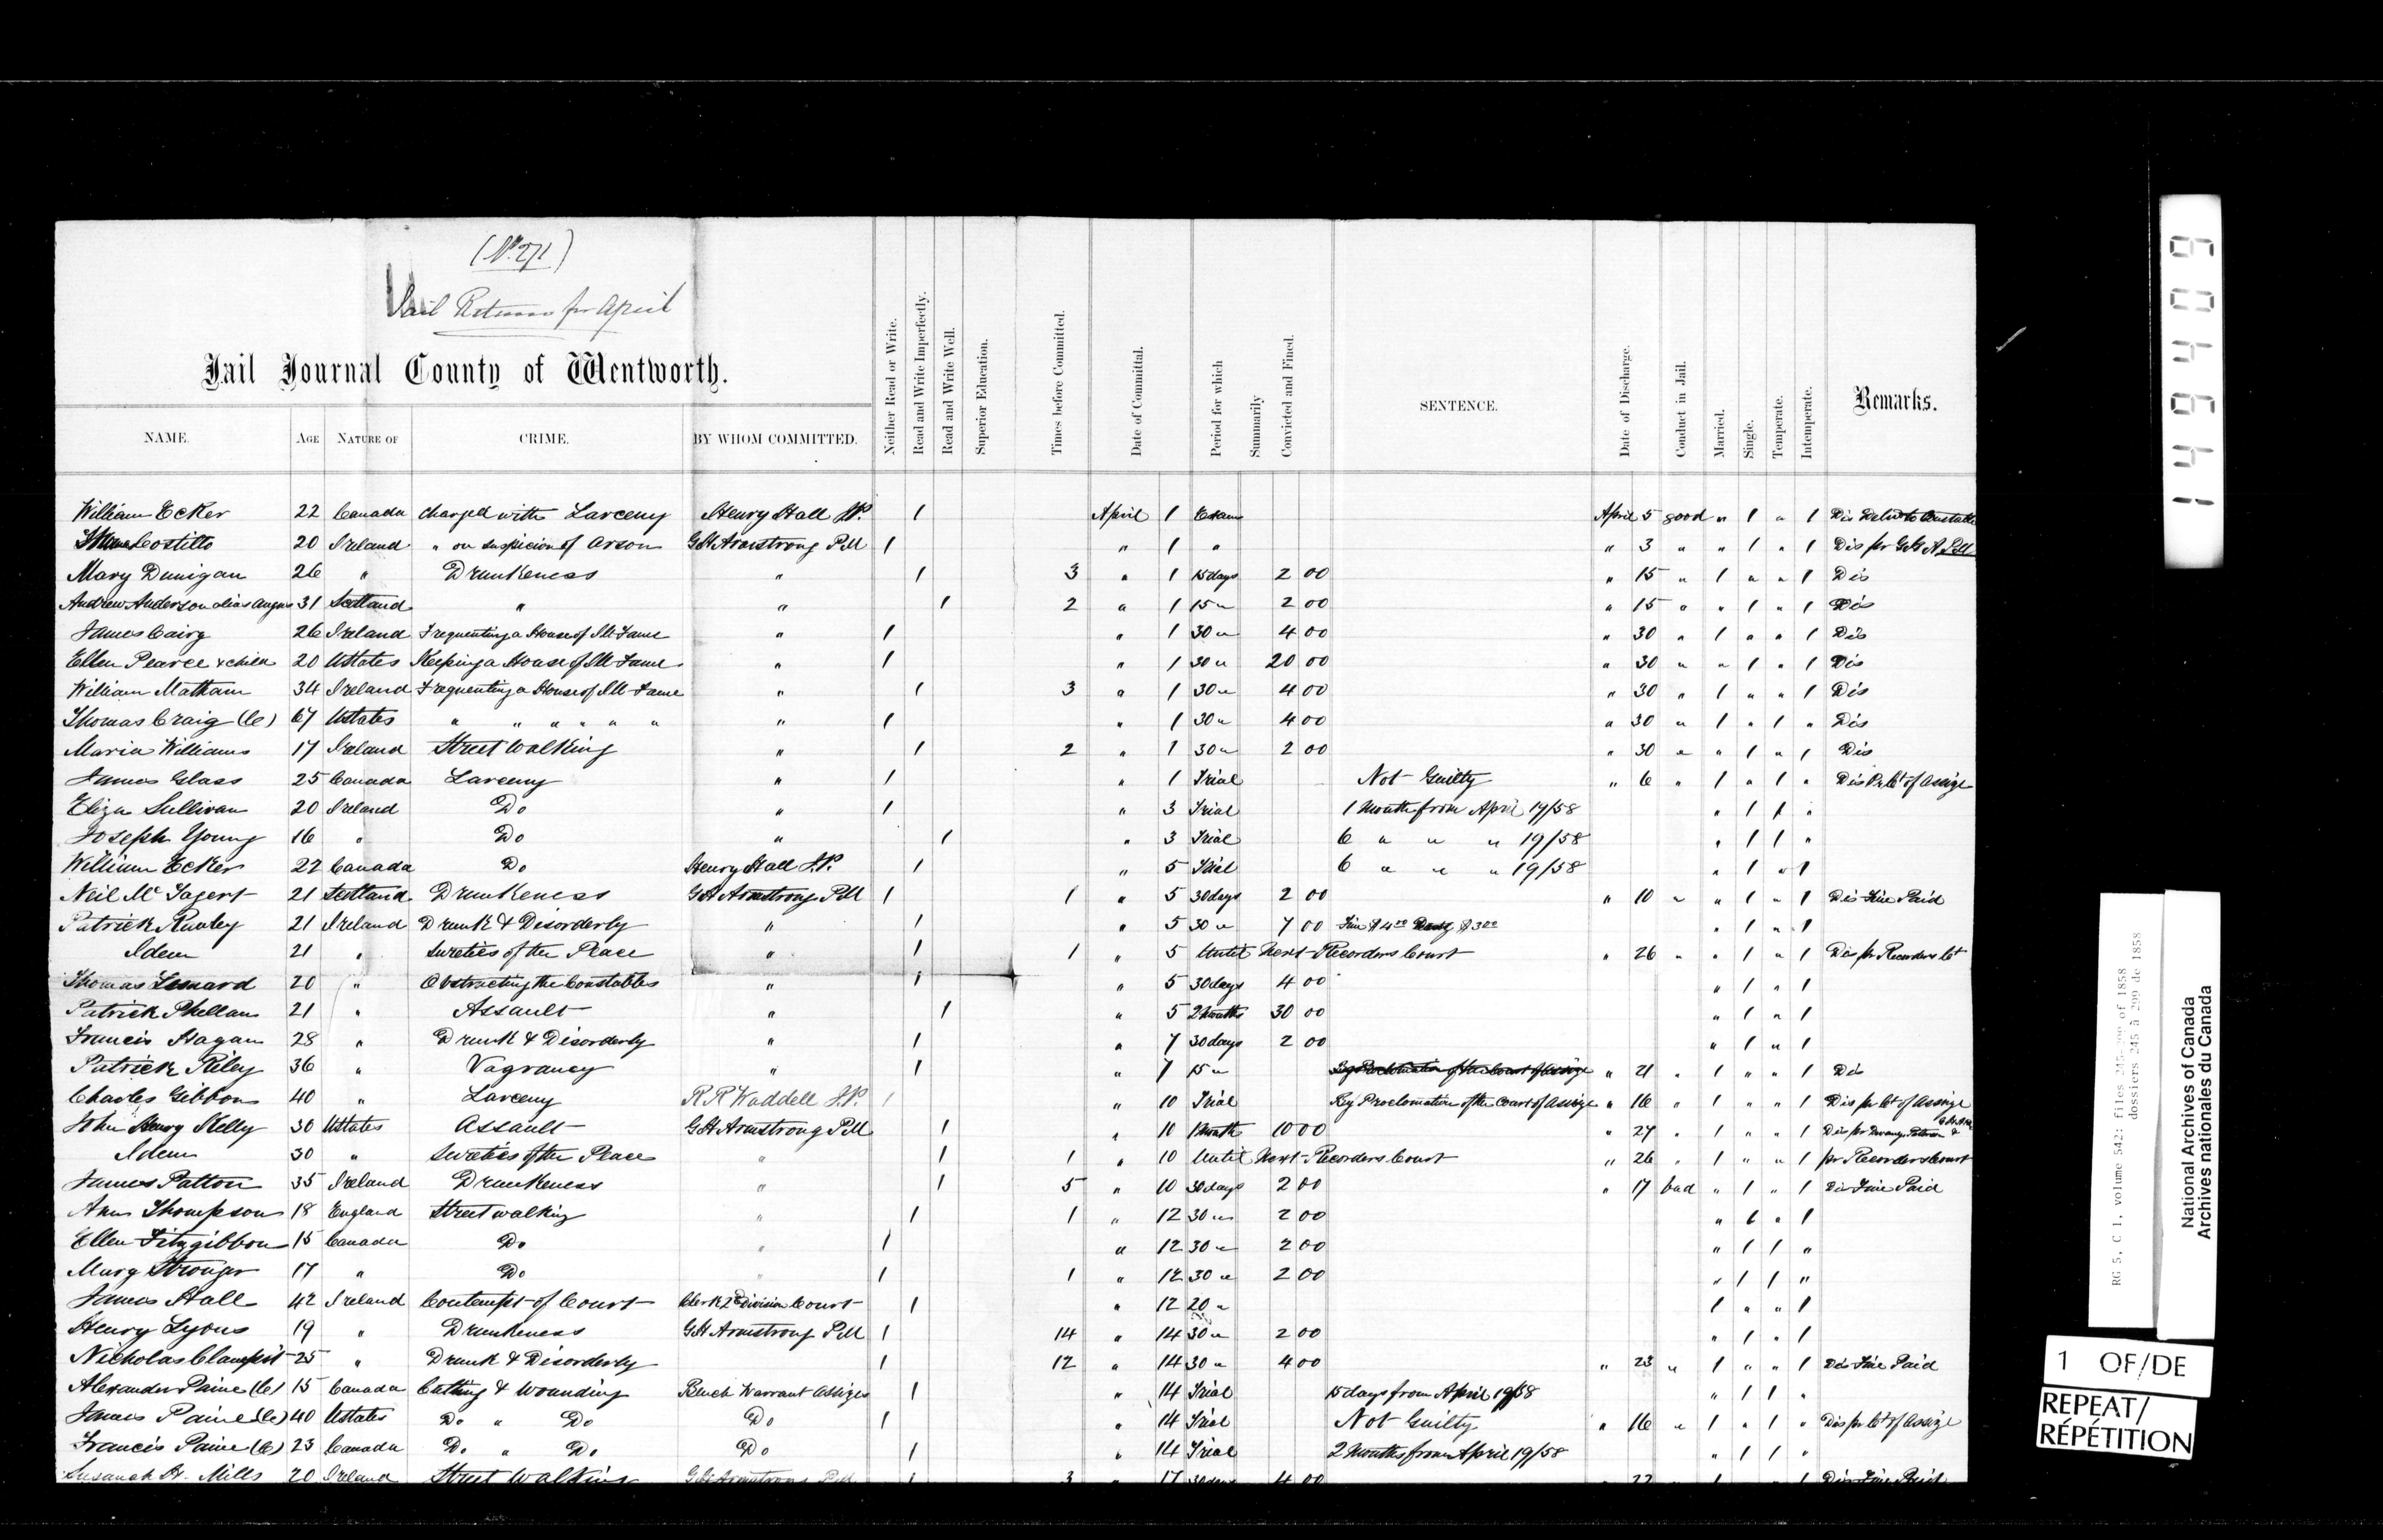 (No. 271)
Jail Returns for April
Jail Journal County of Wentworth.
NAME. AGE NATURE OF CRIME. BY WHOM COMMITTED. Neither Read or Write. Read and Write Imperfectly. Read and Write Well. Superior Education. Times before Committed. Date of Committal. Period for which Summarily Convicted and Fined. SENTENCE. Date of Discharge. Conduct in Jail. Married. Single. Temperate. Intemperate. Remarks.
William Ecker 22 Canada charged with Larceny Henry Hall J.P. 1 April 1 Exam April 5 good " 1 " 1 Dis Delivd to Constable
Costillo 20 Ireland " on suspicion of Arson GH Armstrong PM 1 " 1 " " 3 " " 1 " 1 Dis pr G H A PM
Mary Dunigan 26 " Drunkeness " 1 3 " 1 15 days 2 00 " 15 " 1 " " 1 Dis
Andrew Anderson alias Angus 31 Scotland " " 1 2 " 1 15 " 2 00 " 15 " " 1 " 1 Dis
James Cairy 26 Ireland Frequenting a House of Ill Fame " 1 " 1 30 " 4 00 " 30 " 1 " " 1 Dis
Ellen Pearce & child 20 UStates Keeping a House of Ill Fame " 1 " 1 30 " 20 00 " 30 " " 1 " 1 Dis
William Matham 34 Ireland Frequenting a House of Ill Fame " 1 3 " 1 30 " 4 00 " 30 " 1 " " 1 Dis
Thomas Craig (C) 67 UStates " " " " " " " 1 " 1 30 " 4 00 " 30 " 1 " 1 " Dis
Maria Williams 17 Ireland Street Walking " 1 2 " 1 30 " 2 00 " 30 " " 1 " 1 Dis
James Glass 25 Canada Larceny " 1 " 1 Trial Not Guilty " 6 " 1 " 1 " Dis Pr Ct of Assize
Eliza Sullivan 20 Ireland Do " 1 " 3 Trial 1 Month from April 19/58 " 1 1 "
Joseph Young 16 " Do " 1 " 3 Trial 6 " " " 19/58 " 1 1 "
William Ecker 22 Canada Do Henry Hall J.P. 1 " 5 Trial 6 " " " 19/58 " 1 " 1
Neil Mc Tagert 21 Scotland Drunkeness GH Armstrong PM 1 1 " 5 30 days 2 00 " 10 " " 1 " 1 Dis Fine Paid
Patrick 21 Ireland Drunk & Disorderly " 1 " 5 30 " 7 00 Fine $4 00 $3 00 " 1 " 1
Idem 21 " Sureties of the Peace " 1 1 " 5 Until Next Recorders Court " 26 " " 1 " 1 Dis pr Recorders Ct
Thomas Lennard 20 " Obstructing the Constables " 1 " 5 30 days 4 00 " 1 " 1
Patrick Phellan 21 " Assault " 1 " 5 2 Months 30 00 " 1 " 1
Francis Hagan 28 " Drunk & Disorderly " 1 " 7 30 days 2 00 " 1 " 1
Patrick Riley 36 " Vagrancy " 1 " 7 15 " By Proclamation of the Court of Assize " 21 " 1 " " 1 Dis
Charles Gibbons 40 " Larceny R R Waddell J.P. 1 " 10 Trial By Proclamation of the Court of Assize " 16 " 1 " " 1 Dis pr Ct of Assize
John Henry Kelly 30 UStates Assault GH Armstrong PM 1 " 10 1 Month 10 00 " 27 " 1 " " 1 Dis pr
Idem 30 " Sureties of the Peace " 1 1 " 10 Until Next Recorders Court " 26 " 1 " " 1 pr Recorders Court
James Patton 35 Ireland Drunkeness " 1 5 " 10 30 days 2 00 " 17 bad " 1 " 1 Dis Fine Paid
Ann Thompson 18 England Street walking " 1 1 " 12 30 " 2 00 " 1 " 1
Ellen Fitzgibbon 15 Canada Do " 1 " 12 30 " 2 00 " 1 1 "
Mary Stronger 17 " Do " 1 1 " 12 30 " 2 00 " 1 1 "
James Hall 42 Ireland Contempt of Court Clerk 2d Division Court 1 " 12 20 " 1 " " 1
Henry Lyons 19 " Drunkeness GH Armstrong PM 1 14 " 14 30 " 2 00 " 1 " 1
Nicholas 25 " Drunk & Disorderly 1 12 " 14 30 " 4 00 " 23 " 1 " " 1 Dis Fine Paid
Alexander Paine (C) 15 Canada Cutting & Wounding Bench Warrant Assizes 1 " 14 Trial 15 days from April 19/58 " 1 1 "
James Paine (C) 40 UStates Do " Do Do 1 " 14 Trial Not Guilty " 16 " 1 " 1 " Dis pr Ct of Assize
Francis Paine (C) 23 Canada Do " Do Do 1 " 14 Trial 2 Months from April 19/58 " 1 1 "
Susanah H. Mills 20 Ireland Street Walking GH Armstrong PM 1 3 " 17 30 days 4 00 " 22 " 1 " " 1 Dis Fine Paid
149409
RG 5, C 1, volume 542: files 245-299 of 1858
dossiers 245 à 299 de 1858
National Archives of Canada
Archives nationales du Canada
1 OF/DE
REPEAT/
RÉPÉTITION